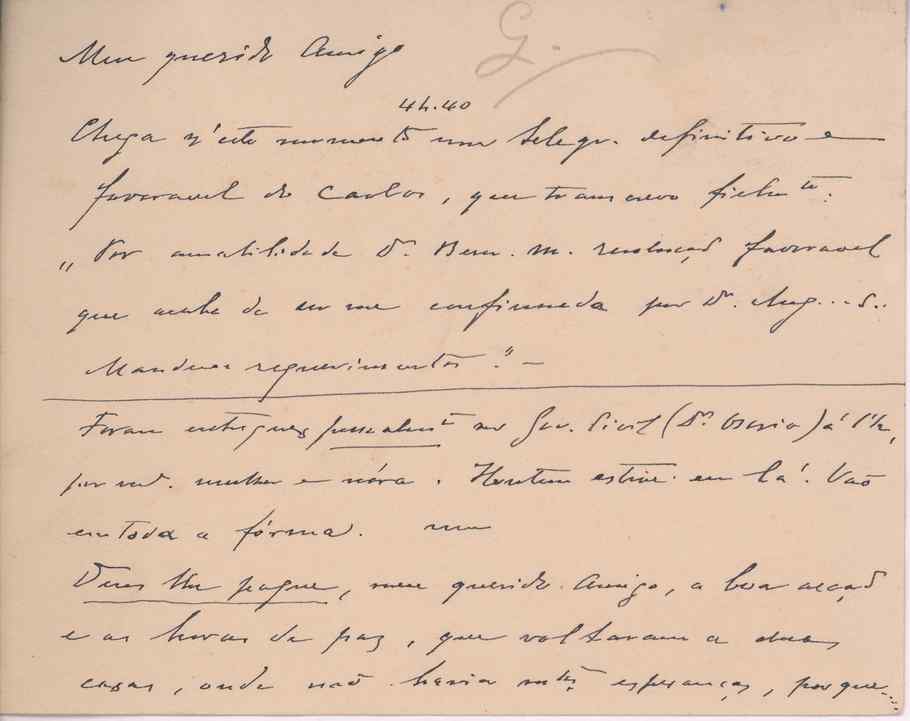 G.
Meu querido Amigo
4h.40
Chega n'este momento um telegr. definitivo e
favoravel do Carlos, que transcrevo fielmte:
"Por amabilidade Dr. Bern. M. resolução favoravel
que acaba de ser me confirmada por Dr. Aug... S..
Mandar requerimentos". —
Foram entregues pessoalmte no Gov. Civil (Dr. Osorio) á 1 1/2,
por mulher e nóra. Hontem estive eu lá. Vão
em toda a fórma.
Deus lhe pague, meu querido Amigo, a boa acção
e as horas de paz, que voltaram a duas
casas, onde não havia mtas esperanças, porque...